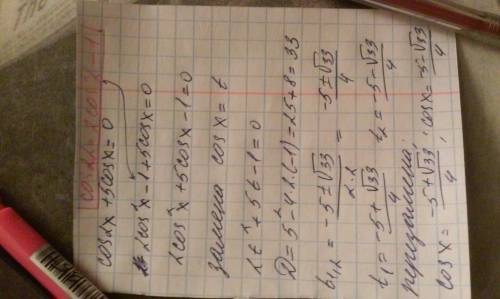 cos2x = 2cos²x - 1
cos2x + 5cosx = 0
2cos²x - 1 + 5cosx = 0
2cos²x + 5cosx - 1 = 0
замена cosx = t
2t² + 5t - 1 = 0
D = 5² - 4·2·(-1) = 25 + 8 = 33
t₁,₂ = (-5 ± √33)/(2·2) = (-5 ± √33)/4
t₁ = (-5 + √33)/4 t₂ = (-5 - √33)/4
cosx = (-5 + √33)/4, cosx = (-5 - √33)/4